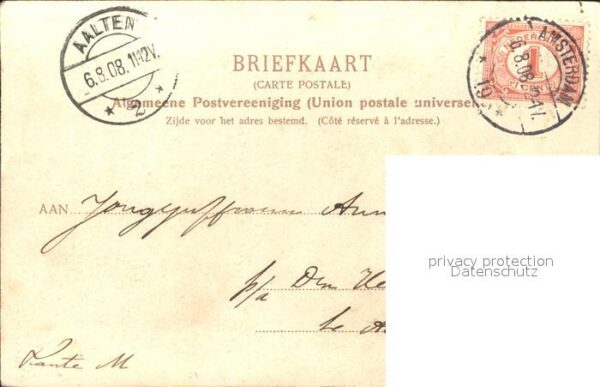 AALTEN
6.8.08. 11-12V.
2
AMSTERDAM
6.8.08
19
NEDERLAND
1
BRIEFKAART
(CARTE POSTALE)
Algemeene Postvereeniging (Union postale universelle)
Zijde voor het adres bestemd. (Côté réservé à l'adresse.)
AAN Jongejuffrouw Ann
p/a Den He
te A
Tante M
privacy protection
Datenschutz